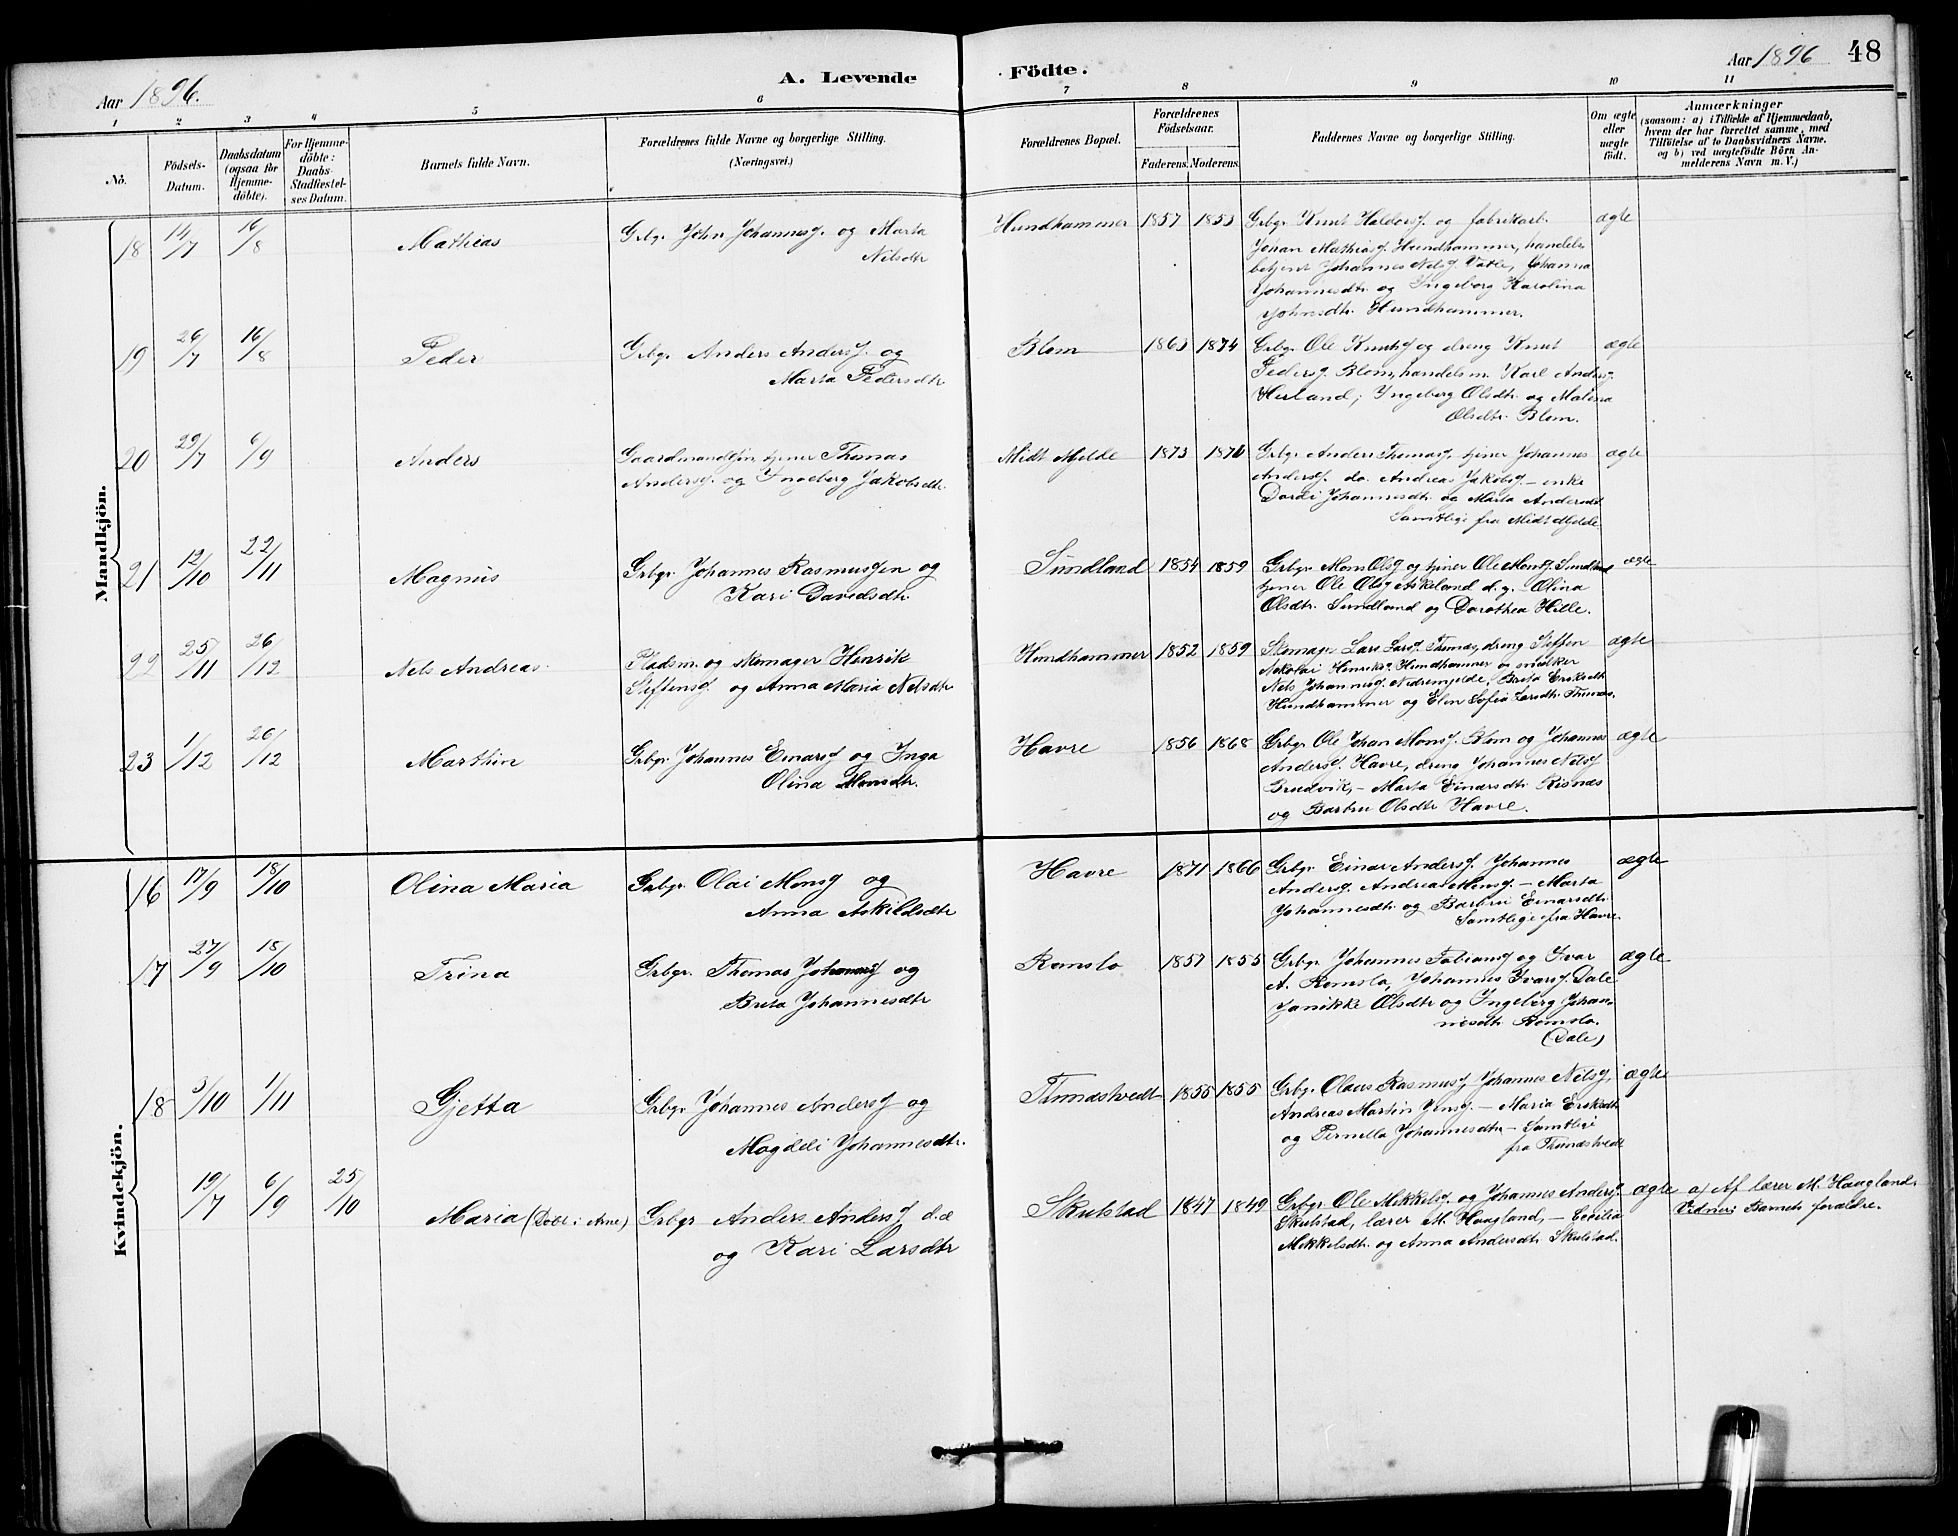 Aar 1896.
A. Levende
Födte.
Aar 1896
48
1 2 3 4 5 6
7 8 9 10 11
No.
Födsels-
Datum.
Daabsdatum
(ogsaa for
Hjemme-
döbte).
For Hjemme-
döbte:
Daabs-
Stadfæstel-
ses Datum.
Barnets fulde Navn.
Forældrenes fulde Navne og borgerlige Stilling.
(Næringsvei.)
Forældrenes Bopæl.
Forældrenes
Födselsaar.
Faderens. Moderens.
Faddernes Navne og borgerlige Stilling.
Om ægte
eller
uægte
födt.
Anmærkninger
(saasom: a) i Tilfælde af Hjemmedaab,
hvem der har forrettet samme, med
Tilföielse af to Daabsvidners Navne,
og b) ved uægtefödte Börn An-
melderens Navn m. V.)
Mandkjön.
18 14/7 16/8 Mathias Grbgr. John Johannesf. og Marta
Nilsdtr
Hundhammer 1857 1853 Grbgr. Knut Haldorsf. og fabrikarb. ægte
Johan Mathiasf. Hundhammer, handels
betjent Johannes Nilsf. Vatle, Johanna
Johannesdtr. og Ingeborg Karolina
Johnsdtr. Hundhammer.
19 26/7 16/8 Peder Grbgr. Anders Andersf. og
Marta Pedersdtr
Blom 1863 1874 Grbgr. Ole Knutsf og dreng Knut ægte
Pedersf. Blom, handelsm. Karl Andersf
Herland, Ingeborg Olsdtr. og Malena
Olsdtr. Blom.
20 29/7 6/9 Anders Gaardmandssön, tjener Thomas
Andersf. og Ingeborg Jakobsdtr.
Midt Mjelde 1873 1876 Grbgr. Anders Thomasf. tjener Johannes ægte
Andersf. do. Andreas Jakobsf. – enke
Dordi Johannesdtr. og Marta Andersdtr
Samtlige fra Midt Mjelde.
21 12/10 22/11 Magnus Grbgr. Johannes Rasmussen og
Kari Davidsdtr.
Sundland 1854 1859 Grbgr. Mons Olsf og tjener Ole Monsf Sundland ægte
tjener Ole Olsf Askeland d.y. Olina
Olsdtr. Sundland og Dorothea Hille.
22 25/11 26/12 Nils Andreas Pladsm. og skomager Henrik
Steffensf og Anna Maria Nilsdtr
Hundhammer 1852 1859 Skomager Lars Larsf. Thunæs, dreng Steffen ægte
Nikolai Henriksf. Hundhammer og snidker
Nils Johannesf. Nedremjelde, Brita Eriksdtr
Hundhammer og Elen Sofia Larsdtr. Thunæs.
23 1/12 26/12 Marthin Grbgr. Johannes Einarsf og Inga
Olina Monsdtr.
Havre 1856 1868 Grbgr. Ole Johan Monsf. Blom og Johannes ægte
Andersf. Havre, dreng Johannes Nilsf
Bruvik, – Marta Einarsdtr. Risnæs
og Barbru Olsdtr Havre.
Kvindekjön.
16 17/9 18/10 Olina Maria Grbgr. Olai Monsf og
Anna Askildsdtr
Havre 1871 1866 Grbgr. Einar Andersf. Johannes ægte
Andersf. Andreas Monsf. – Marta
Johannesdtr. og Barbru Einarsdtr.
Samtlige fra Havre.
17 27/9 18/10 Trina Grbgr. Thomas Johannesf og
Brita Johannesdtr
Romslo 1857 1855 Grbgr. Johannes Fabiansf og Ivar ægte
A. Romslo, Johannes Ivarsf. Dale
Janikke Olsdtr og Ingeborg Johan-
nesdtr. Romslo.
(Dale)
18 3/10 1/11 Gjetta Grbgr. Johannes Andersf og
Magdeli Johannesdtr.
Thunæstvedt 1855 1855 Grbgr. Olaus Rasmusf, Johannes Nilsf, ægte
Andreas Martin Jensf. – Maria Eriksdtr
og Pernilla Johannesdtr – Samtlige
fra Thunæstvedt
19/7 6/9 25/10 Maria (Döbt i Arne) Grbgr Anders Andersf d.æ
og Kari Larsdtr
Skulstad 1847 1849 Grbgr. Ole Mikkelsf. og Johannes Andersf. ægte a) Af lærer M. Haagland.
Skulstad, lærer M. Haagland, – Cecilia Vidner: Barnets forældre.
Mikkelsdtr. og Anna Andersdtr Skulstad.